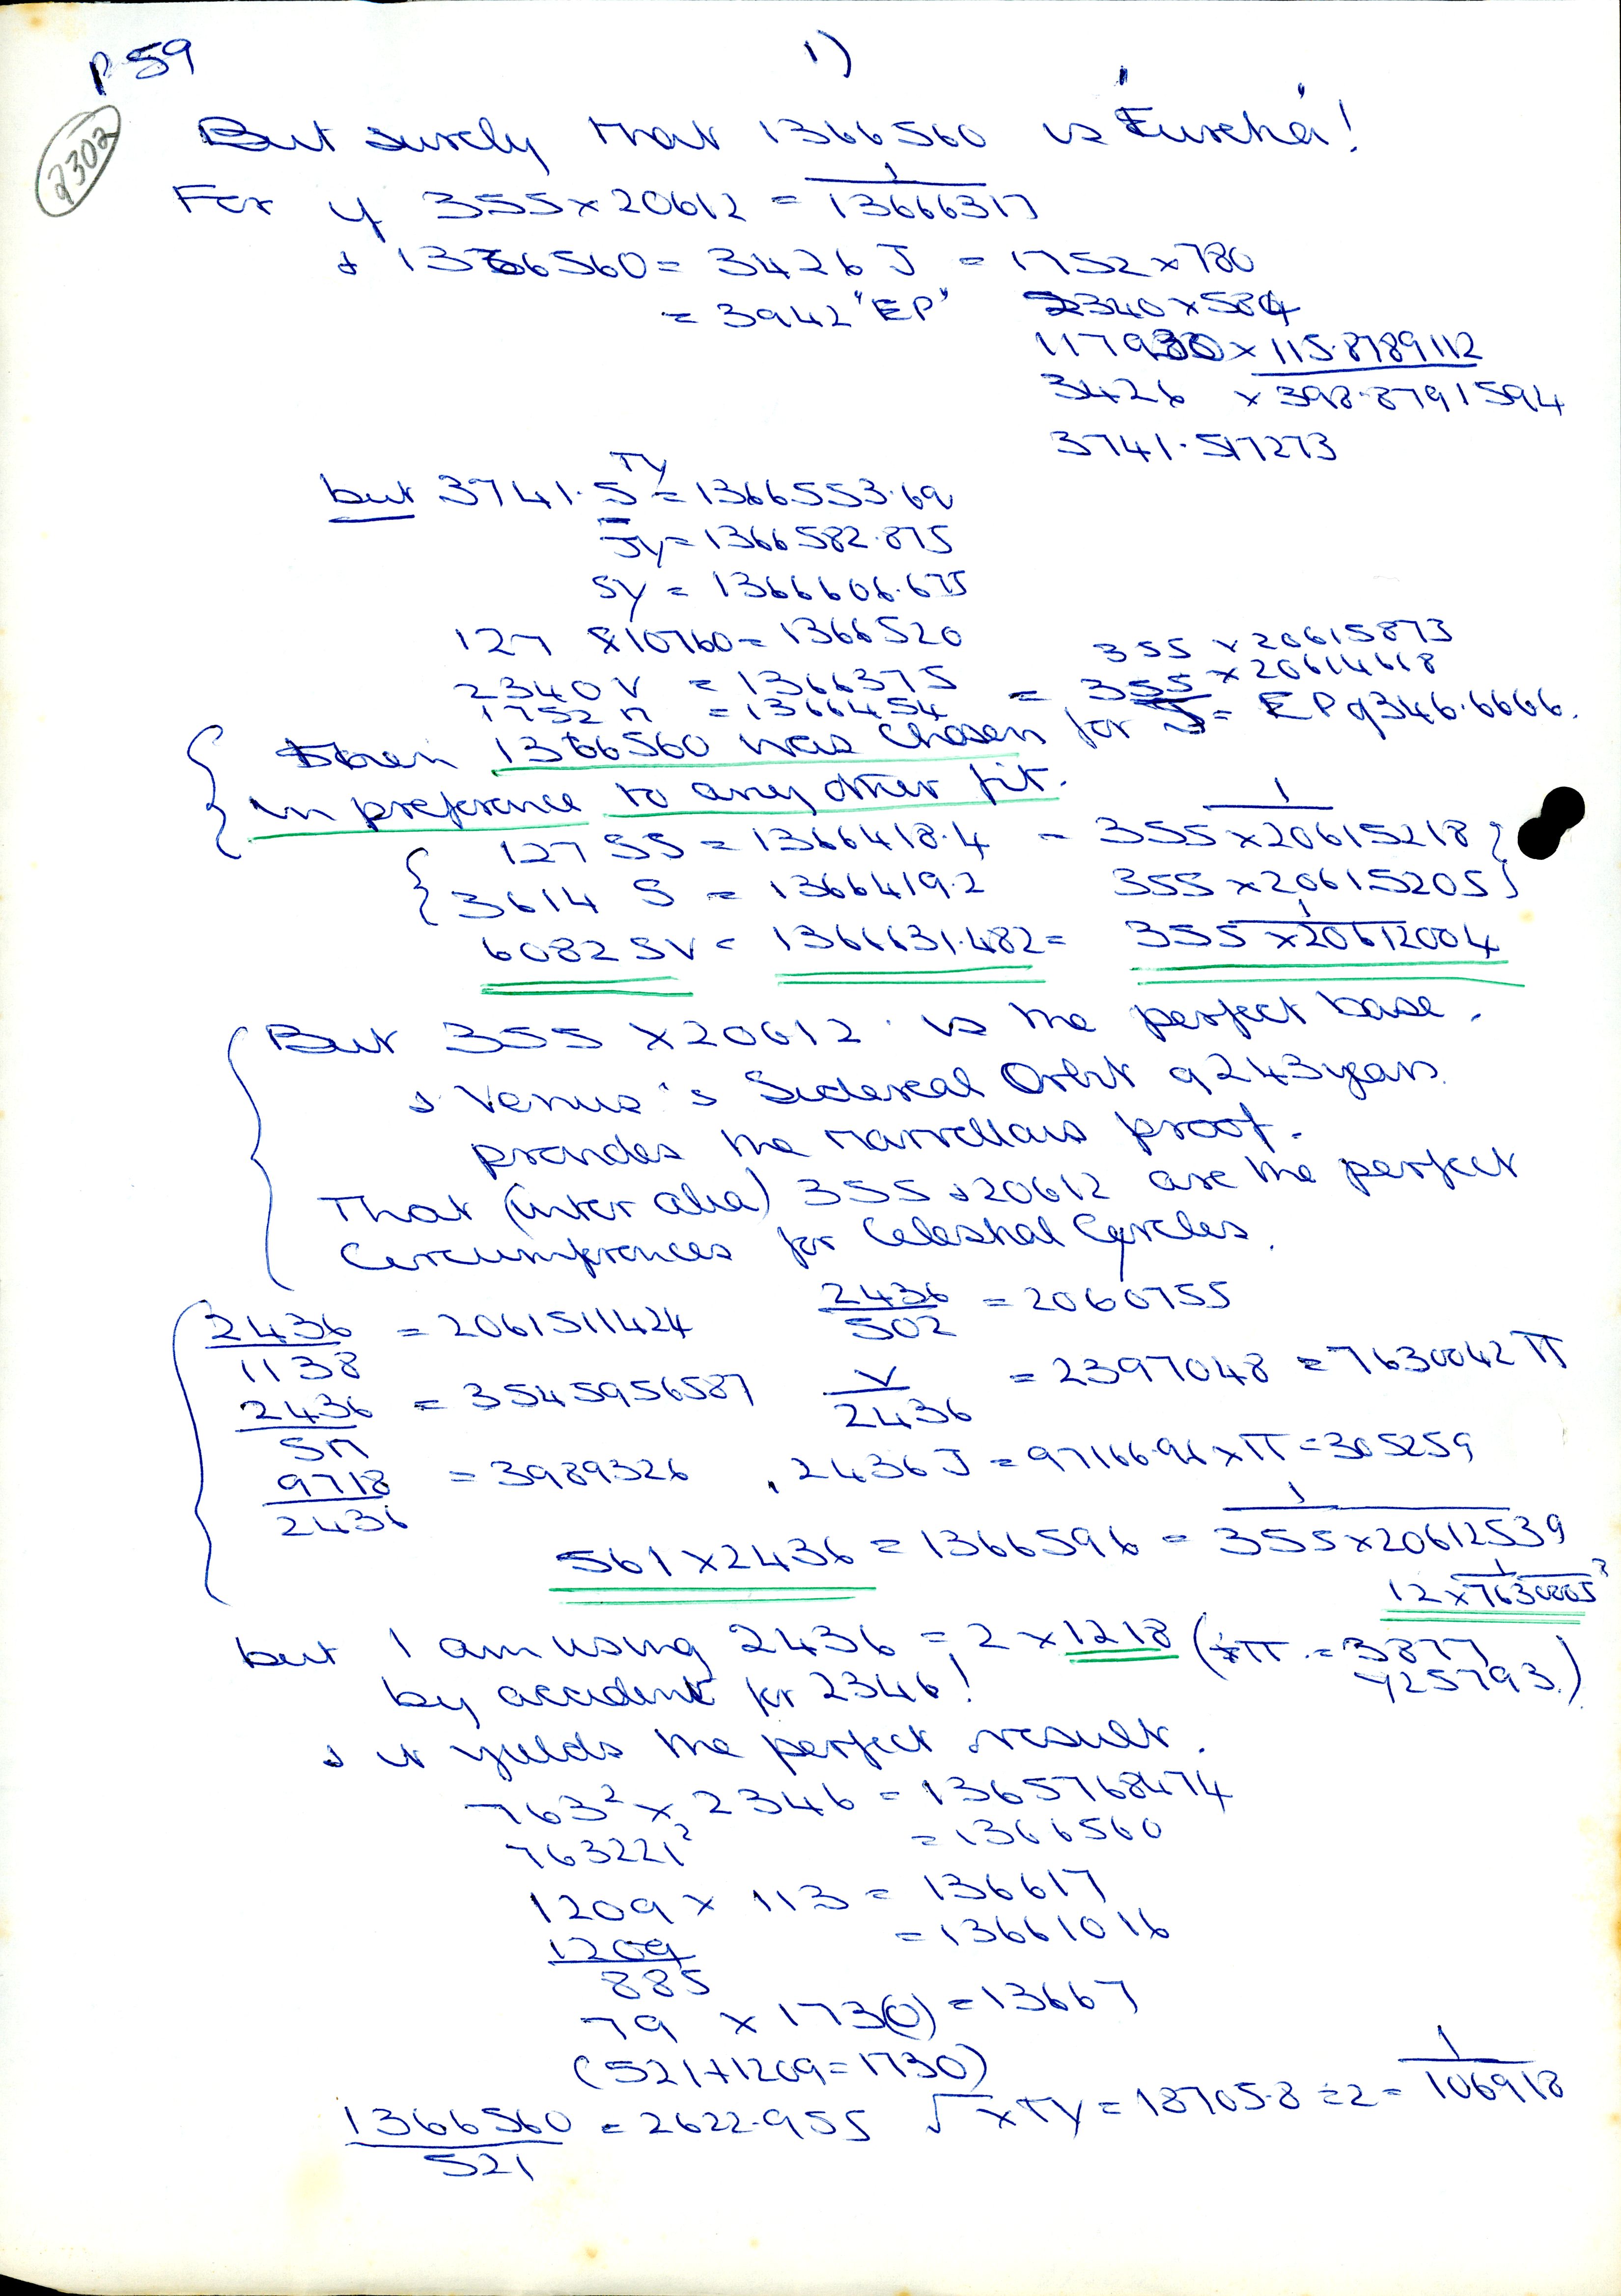 p 59
1)
2302
But surely that 1366560 is 'Eureka'!
For if 355 × 20612 = 1/13666317
& 1366560 = 3426 J = 1752 × 780
= 3942 "EP" 2340 × 584
117930 × 115.8789112
3426 × 398.8791594
3741.517273
but 3741.5 TY = 1366553.69
JY = 1366582.875
SY = 1366606.675
127 × 10760 = 1366520
355 × 20615873
2340 V = 1366375 = 355 × 20614618
1752 M = 1366454
Then 1366560 was chosen for J = EP of 346.6666.
in preference to any other fit.
127 SS = 1366418.4 = 1/355 × 20615218
3614 S = 1366419.2 355 × 20615205
6082 SV = 1366631.482 = 1/355 × 20612004
But 355 × 20612 is the perfect base.
& Venus's Sidereal Orbit of 243 years
provides the marvellous proof.
That (inter alia) 355 & 20612 are the perfect
Circumferences for Celestial Cycles.
2436/1138 = 2061511424 2436/502 = 2060755
2436/SM = 3545956587 V/2436 = 2397048 = 7630042 π
9718/2436 = 3989326 , 2436 J = 9716696 × π = 305259
561 × 2436 = 1366596 = 1/355 × 20612539
1/12 × 7630005²
but I am using 2436 = 2 × 1218 (×π = 3877
by accident for 2346! 425793.)
& it yields the perfect result.
763² × 2346 = 1365768474
763221² = 1366560
1209 × 113 = 136617
1209/885 = 13661016
79 × 173(0) = 13667
(521 + 1209 = 1730)
1366560/521 = 2622.955 √ × TY = 18705.8 ÷ 2 = 1/106918